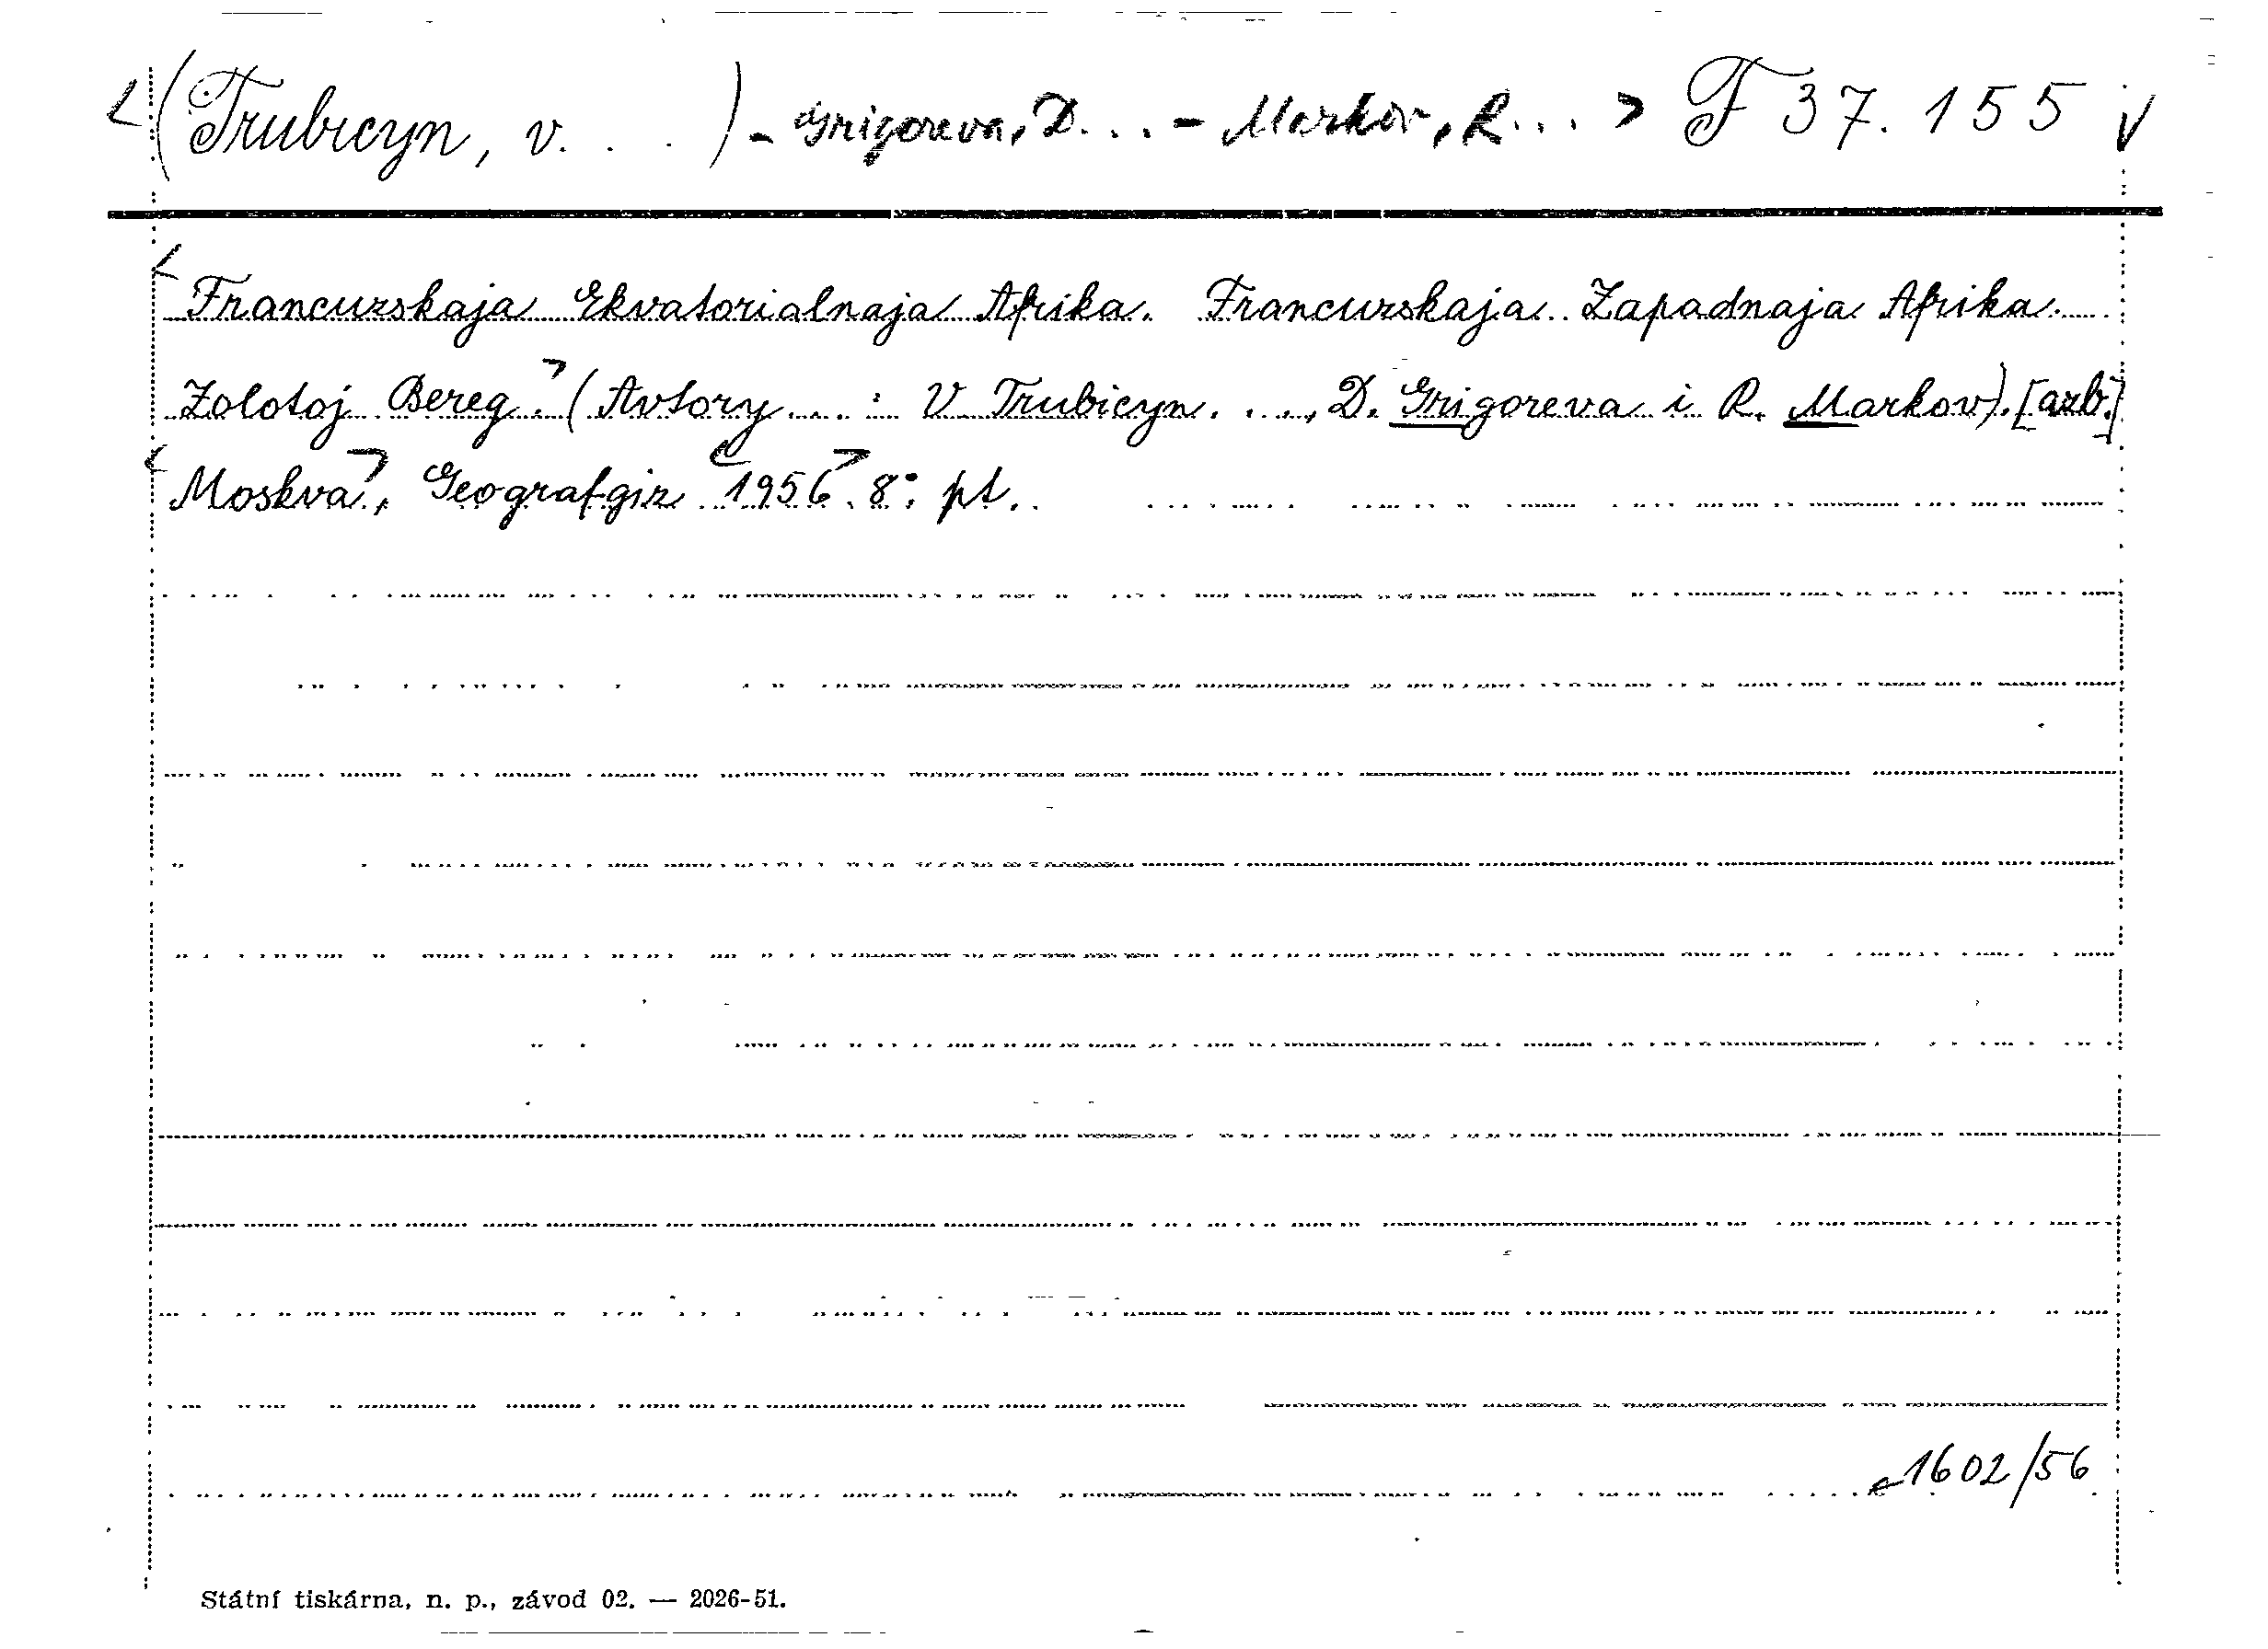 <(Trubicyn, V. . . ) - Grigoreva, D... - Markov, R... > F 37.155
<Francuzskaja Ekvatorialnaja Afrika. Francuzskaja Zapadnaja Afrika.
Zolotoj Bereg.> (Avtory...: V Trubicyn. ..., D. Grigoreva i R. Markov). [azb.]
<Moskva>, Geografgiz <1956>. 8°. pt.
1602/56
Státní tiskárna, n. p., závod 02. — 2026-51.